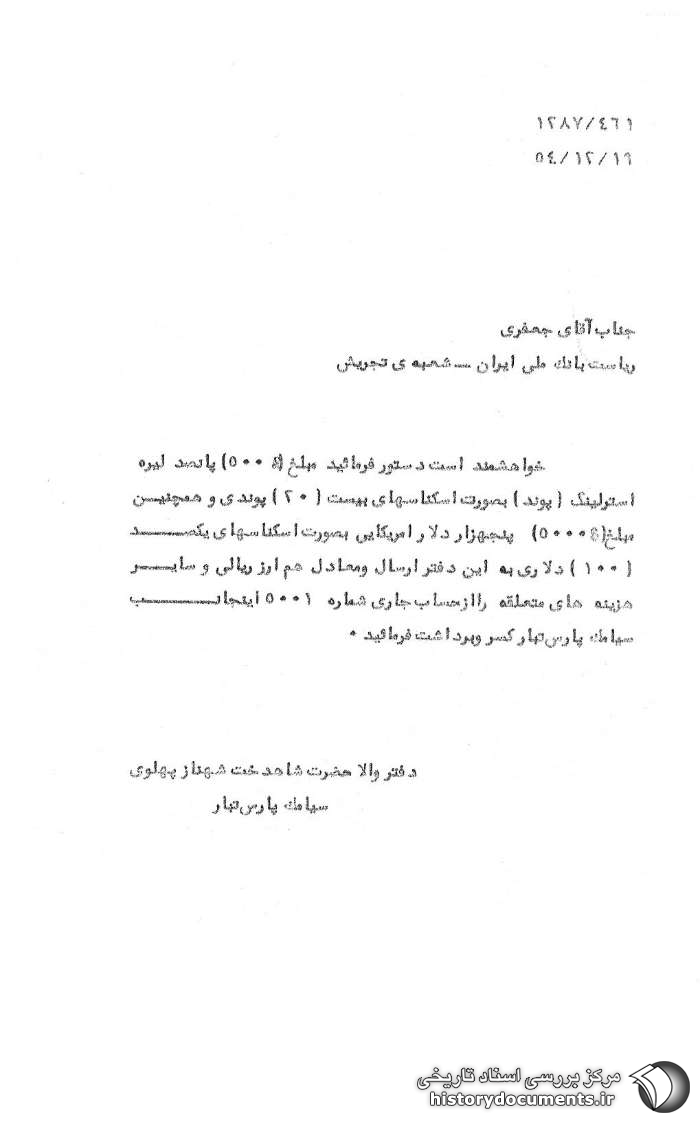 ١٢٨٧/٤٦١
٥٤/١٢/١٩
جناب آقای جعفری
ریاست بانك ملی ایران ـ شعبه ی تجریش
خواهشمند است دستور فرمائید مبلغ (£ ٥٠٠) پانصد لیره
استرلینگ (پوند) بصورت اسکناسهای بیست (٢٠) پوندی و همچنیـن
مبلغ ($ ٥٠٠٠) پنجهزار دلار امریکایی بصورت اسکناسهای یکصـــد
(١٠٠) دلاری به این دفتر ارسال ومعادل هم ارز ریالی و سایــر
هزینه های متعلقه را از حساب جاری شماره ٥٠٠١ اینجانـــب
سیامك پارس‌تبار کسر وبرداشت فرمائید ٠
دفتر والا حضرت شاهدخت شهناز پهلوی
سیامك پارس‌تبار
مرکز بررسی اسناد تاریخی
historydocuments.ir